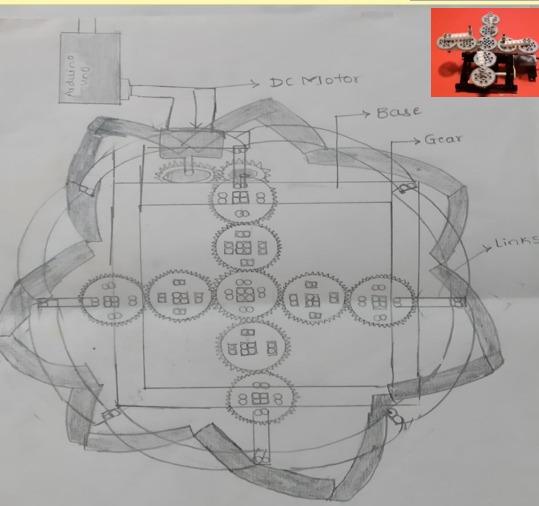 Arduino
uno
DC Motor
Base
Gear
Links